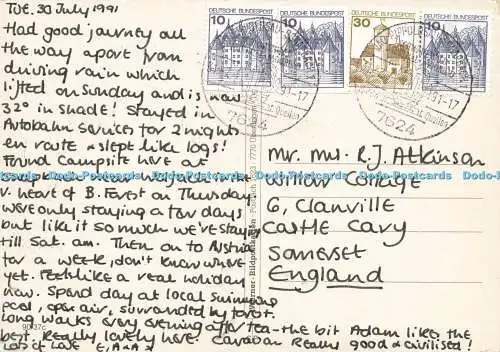 TUE. 30 July 1991
Had good journey all
the way apart from
driving rain which
lifted on Sunday and is now
32° in shade! Stayed in
Autobahn services for 2 nights
en route & slept like logs!
Found Campsite here at
v. heart of B. Forest on Thursday
were only staying a few days
but like it so much we're stay
till Sat. am. Then on to Austria
for a week, don't know where
yet. Feels like a real holiday
now. Spend day at local swimming
pool, open air, surrounded by forest.
long walks every evening after tea - the bit Adam likes the
best. Really lovely here! Caravan really good & civilised!
Lots of Love
DEUTSCHE BUNDESPOST
10
DEUTSCHE BUNDESPOST
10
DEUTSCHE BUNDESPOST
30
DEUTSCHE BUNDESPOST
10
91-17
7624
91-17
7624
Mr. Mrs. R.J. Atkinson
Willow Cottage
6, Clanville
Castle Cary
Somerset
England
90/37c
Dodo-Postcards Dodo-Postcards Dodo-Postcards Dodo-Postcards